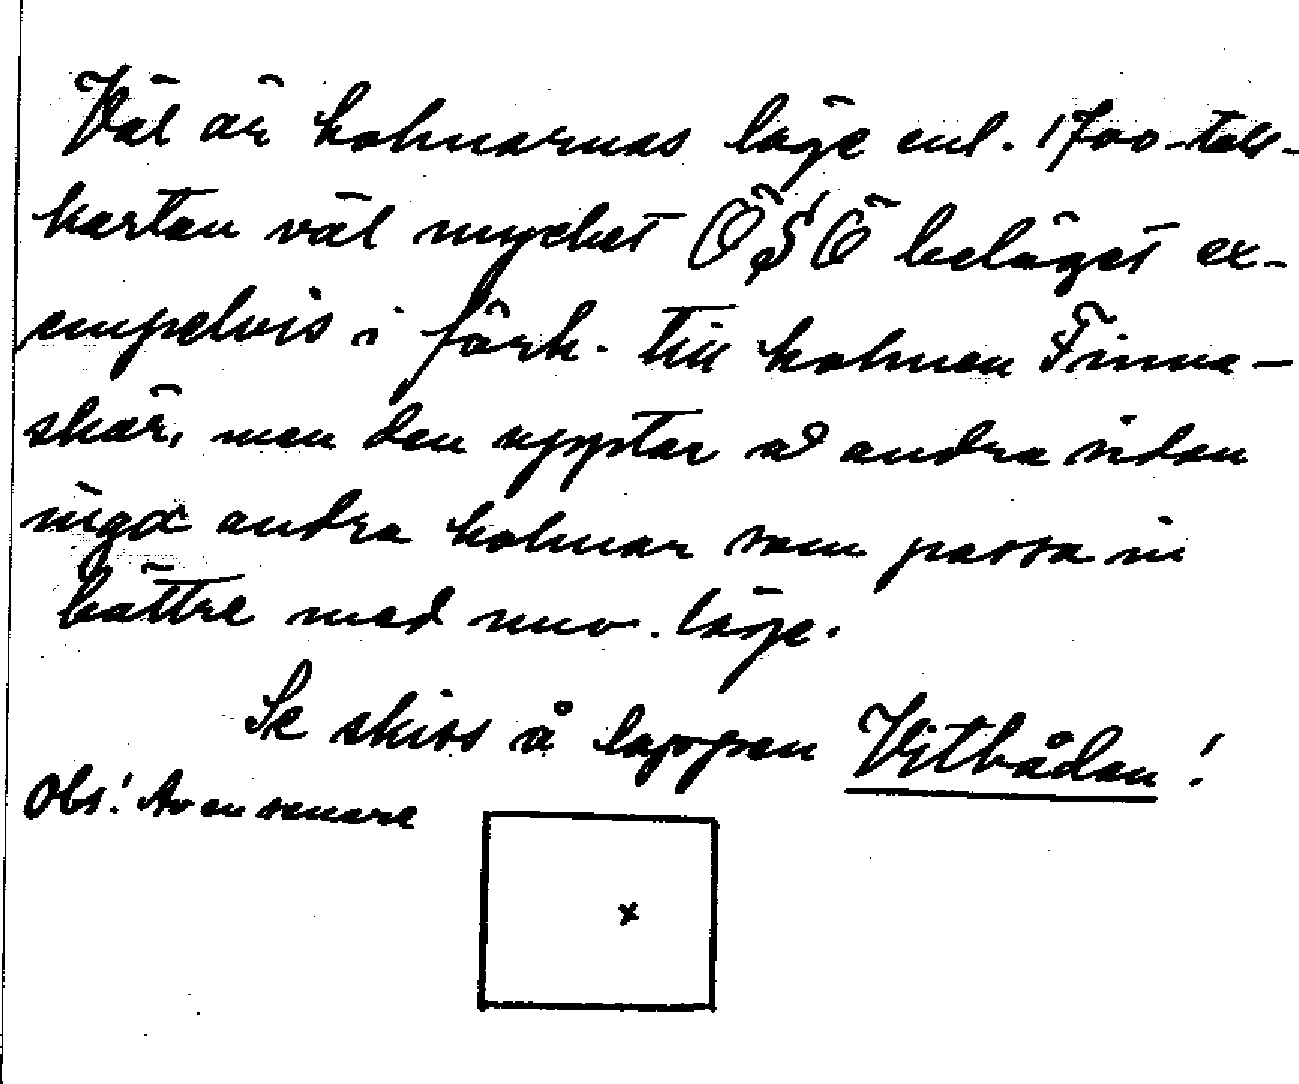 Väl är holmarnas läge enl. 1700-tals-
kartan väl mycket ÖSÖ beläget ex-
empelvis i förh. till holmen Finne-
skär, men den upptar å andra sidan
inga andra holmar som passa in
bättre med nuv. läge.
Se skiss å lappen Vitbådan!
Obs! Av en senare
x